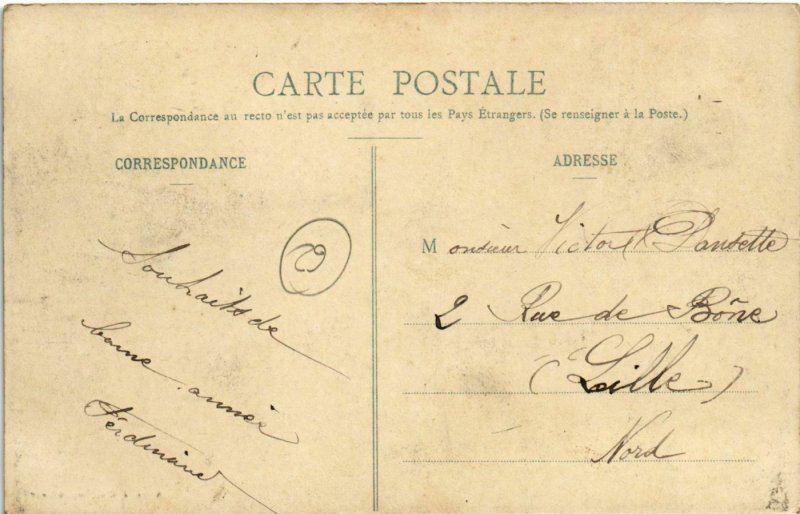 CARTE POSTALE
La Correspondance au recto n'est pas acceptée par tous les Pays Étrangers. (Se renseigner à la Poste.)
CORRESPONDANCE
Souhaits de
bonne année
Ferdinand
ADRESSE
Monsieur Victor
2 Rue de Bône
(Lille)
Nord